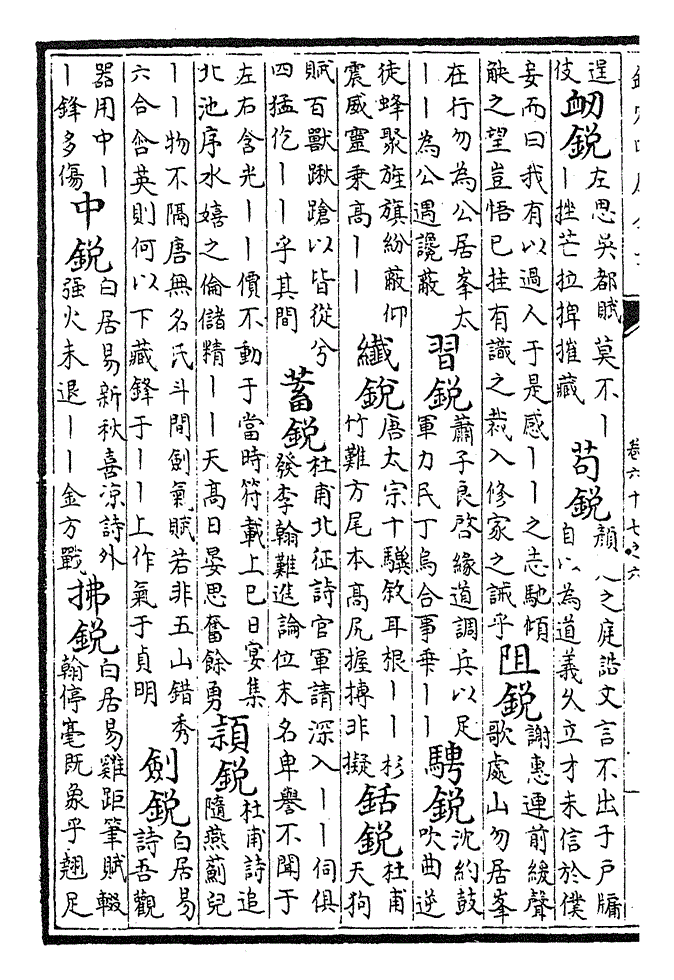 欽定四庫全書
卷六十七之六
逞
伎
衄鋭
左思吳都賦莫不丨
丨挫芒拉捭摧藏
苟鋭
顏 之庭誥文言不出于戶牖
自以為道義久立才未信於僕
妾而曰我有以過人于是感丨丨之志馳傾
觖之望豈悟已挂有識之裁入修家之誡乎
阻鋭
謝惠連前緩聲
歌處山勿居峯
在行勿為公居峯太
丨丨為公遇讒蔽
習鋭
蕭子良啓緣道調兵以足
軍力民丁烏合事乖丨丨
騁鋭
沈約鼓
吹曲逆
徒蜂聚旌旗紛蔽仰
震威靈乘高丨丨
纎鋭
唐太宗十驥敘耳根丨丨杉
竹難方尾本高尻握摶非擬
銛鋭
杜甫
天狗
賦百獸蹴蹌以皆從兮
四猛仡丨丨乎其間
蓄鋭
杜甫北征詩官軍請深入丨丨伺俱
發李翰難進論位末名卑譽不聞于
左右含光丨丨價不動于當時符載上巳日宴集
北池序水嬉之倫儲精丨丨天高日晏思奮餘勇
頴鋭
杜甫詩追
隨燕薊兒
丨丨物不隔唐無名氏斗間劍氣賦若非五山錯秀
六合含英則何以下藏鋒于丨丨上作氣于貞明
劍鋭
白居易
詩吾觀
器用中丨
丨鋒多傷
中鋭
白居易新秋喜凉詩外
强火未退丨丨金方戰
拂鋭
白居易雞距筆賦輟
翰停毫既象乎翹足